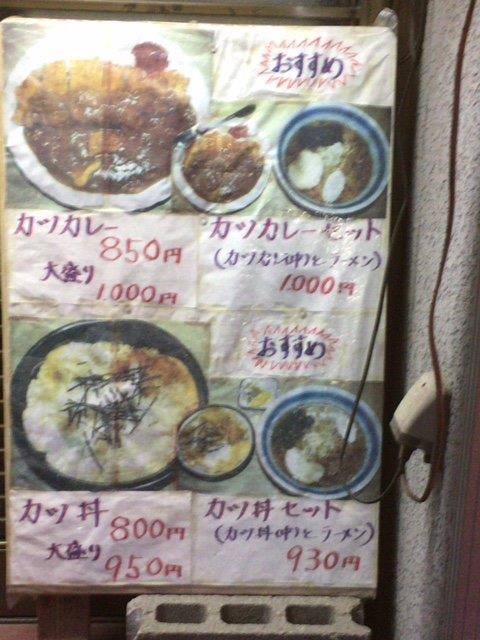 おすすめ
カツカレー
850円
大盛り
1.000円
カツカレーセット
(カツカレー(中)とラーメン)
1.000円
おすすめ
カツ丼
800円
大盛り
950円
カツ丼セット
(カツ丼(中)とラーメン)
930円